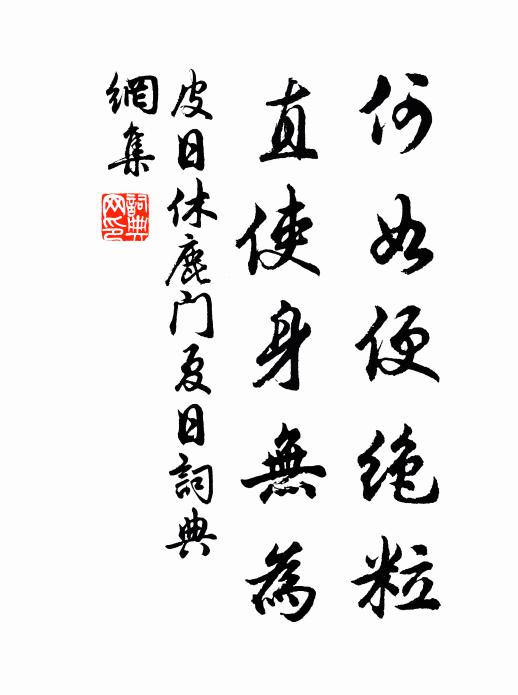 何如便絶粒
直使身無為
皮日休鹿门夏日詞典
網集
詞典
网印